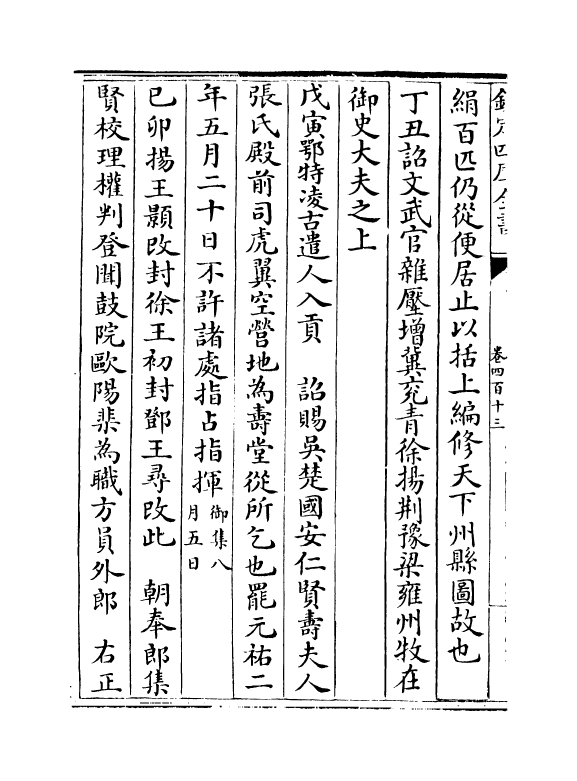 欽定四庫全書
卷四百十三
絹百匹仍從便居止以括上編修天下州縣圖故也
丁丑詔文武官雜壓增冀兖青徐揚荆豫梁雍州牧在
御史大夫之上
戊寅鄂特凌古遣人入貢　詔賜吳楚國安仁賢壽夫人
張氏殿前司虎翼空營地為壽堂從所乞也罷元祐二
年五月二十日不許諸處指占指揮御集八月五日
已卯揚王顥改封徐王初封鄧王尋改此　朝奉郎集
賢校理權判登聞鼓院歐陽棐為職方員外郎　右正